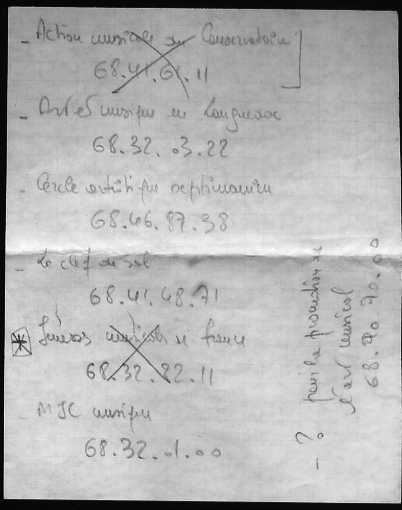 - Action musicale au Conservatoire
68.41.61.11
- Art et musique en Languedoc
68.32.03.22
- Cercle artistique septimanien
68.46.87.38
- La clef de sol
68.41.48.71
* Jeunesses musicales de france
68.32.82.11
- MJC musique
68.32.01.00
- ? pour la promotion de
l'art musical
68.90.70.00